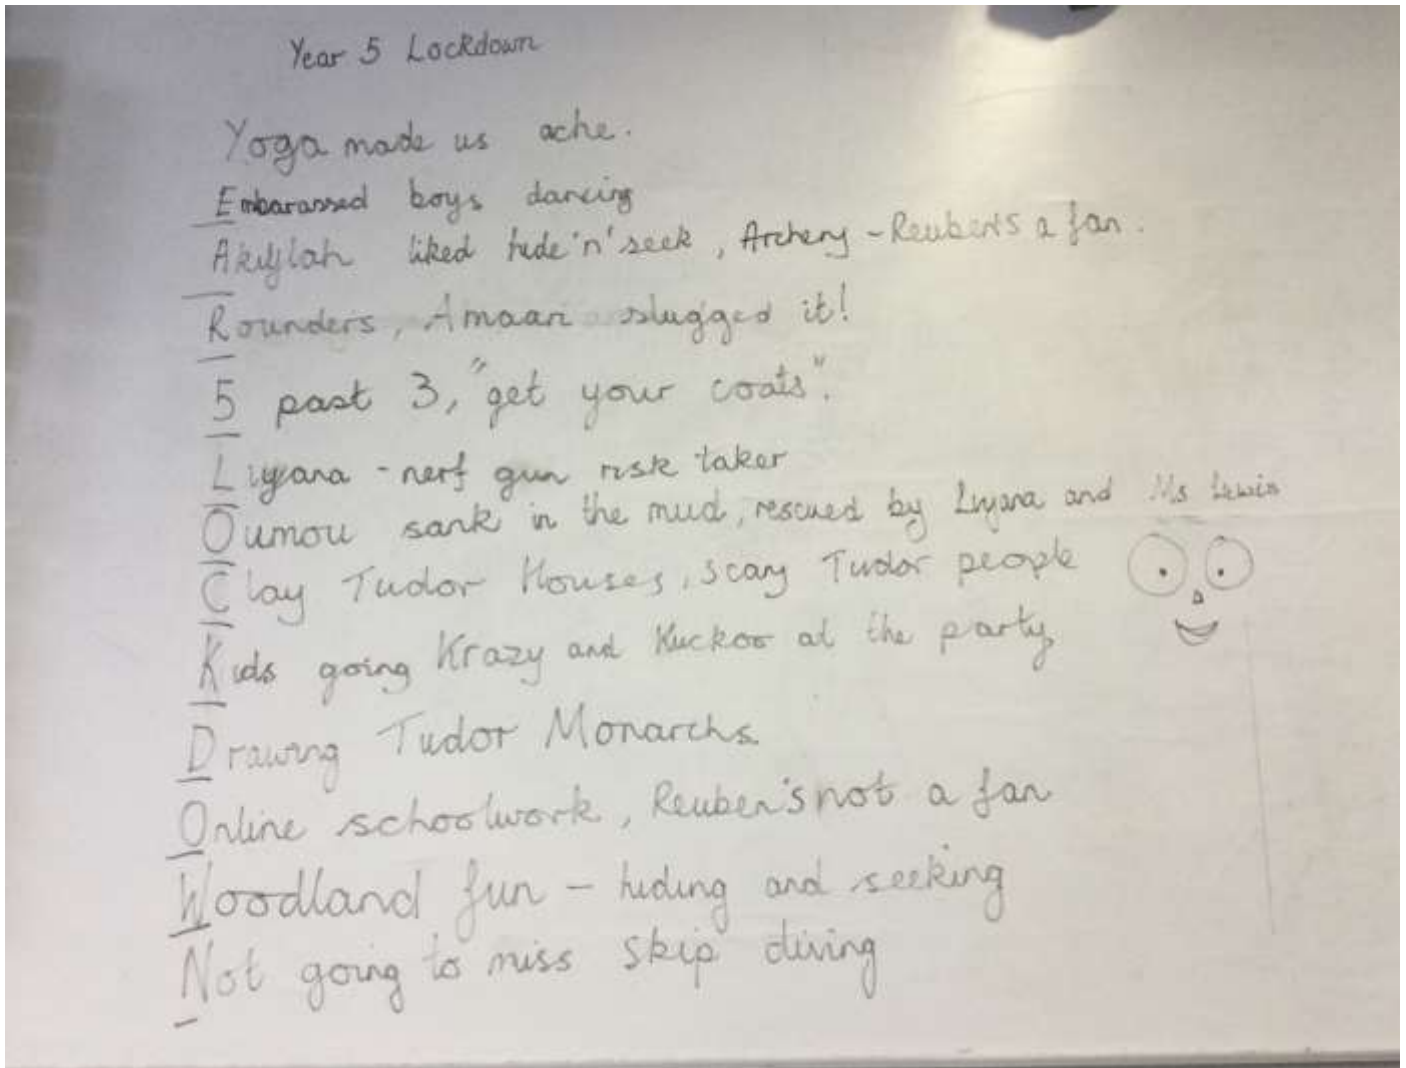 Year 5 Lockdown
Yoga made us ache.
Embarassed boys dancing
liked hide 'n' seek, Archery - Reuben's a fan.
Rounders, Amaan slugged it!
5 past 3, "get your coats".
Liyana - nerf gun risk taker
Oumou sank in the mud, rescued by Liyana and Ms Lewis
Clay Tudor Houses, scary Tudor people
Kids going Krazy and Kuckoo at the party
Drawing Tudor Monarchs
Online schoolwork, Reuben's not a fan
Woodland fun - hiding and seeking
Not going to miss skip diving